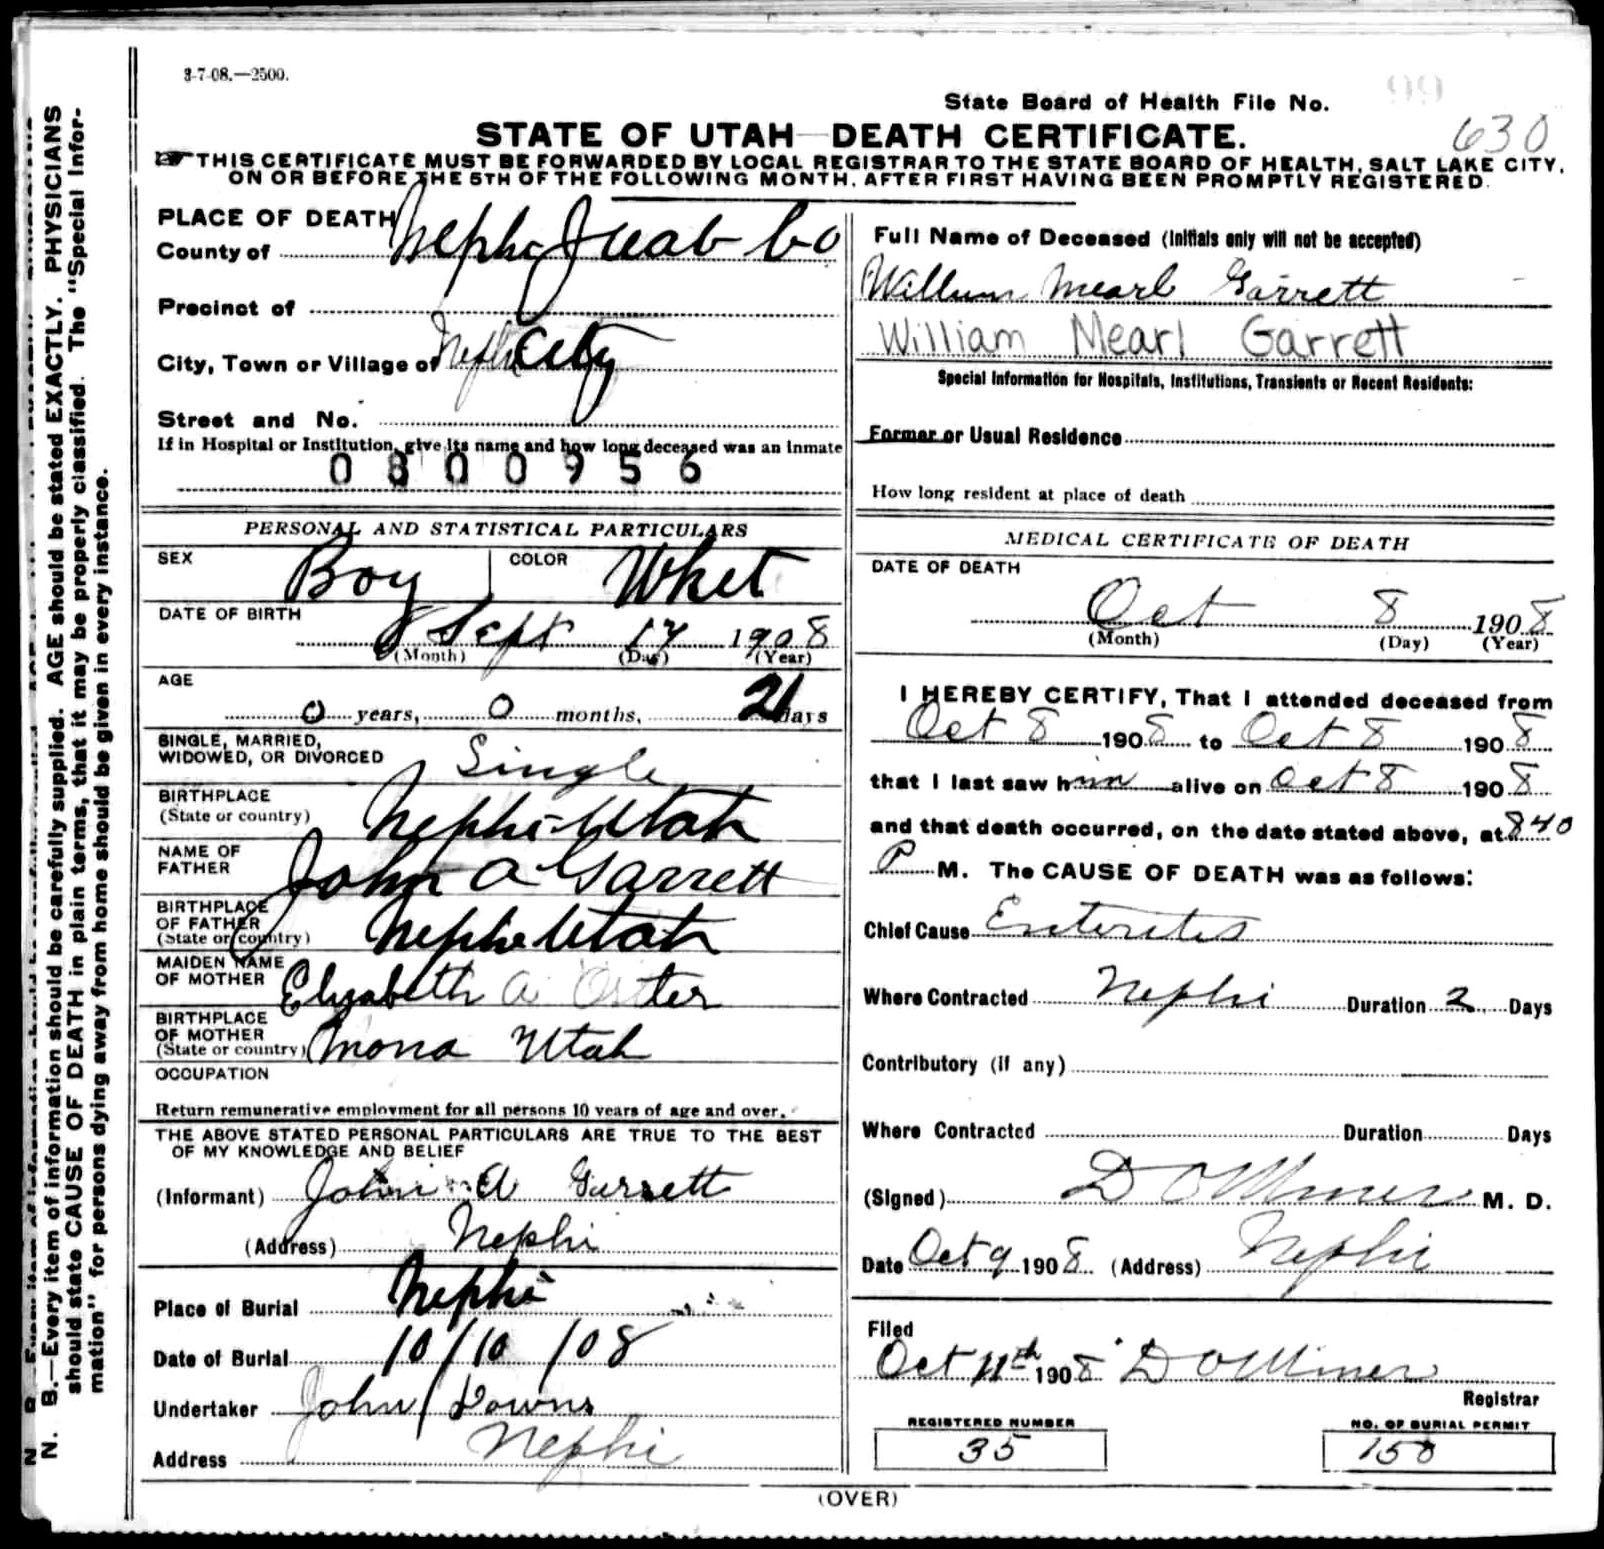 3-7-08.—2500.
99
State Board of Health File No.
630
STATE OF UTAH—DEATH CERTIFICATE.
THIS CERTIFICATE MUST BE FORWARDED BY LOCAL REGISTRAR TO THE STATE BOARD OF HEALTH, SALT LAKE CITY,
ON OR BEFORE THE 5TH OF THE FOLLOWING MONTH, AFTER FIRST HAVING BEEN PROMPTLY REGISTERED.
PLACE OF DEATH
County of Nephi Juab Co
Precinct of
City, Town or Village of Nephi City
Street and No.
If in Hospital or Institution, give its name and how long deceased was an inmate
0800956
PERSONAL AND STATISTICAL PARTICULARS
SEX Boy COLOR Whet
DATE OF BIRTH
Sept 17 1908
(Month) (Day) (Year)
AGE
0 years, 0 months, 21 days
SINGLE, MARRIED,
WIDOWED, OR DIVORCED Single
BIRTHPLACE
(State or country) Nephi Utah
NAME OF
FATHER John A Garrett
BIRTHPLACE
OF FATHER
(State or country) Nephi Utah
MAIDEN NAME
OF MOTHER Elizabeth A
BIRTHPLACE
OF MOTHER
(State or country) Mona Utah
OCCUPATION
Return remunerative employment for all persons 10 years of age and over.
THE ABOVE STATED PERSONAL PARTICULARS ARE TRUE TO THE BEST
OF MY KNOWLEDGE AND BELIEF
(Informant) John A Garrett
(Address) Nephi
Place of Burial Nephi
Date of Burial 10/10/08
Undertaker John Downs
Address Nephi
Full Name of Deceased (Initials only will not be accepted)
William Mearl Garrett
William Mearl Garrett
Special Information for Hospitals, Institutions, Transients or Recent Residents:
Former or Usual Residence
How long resident at place of death
MEDICAL CERTIFICATE OF DEATH
DATE OF DEATH
Oct 8 1908
(Month) (Day) (Year)
I HEREBY CERTIFY, That I attended deceased from
Oct 8 1908 to Oct 8 1908
that I last saw him alive on Oct 8 1908
and that death occurred, on the date stated above, at 840
P M. The CAUSE OF DEATH was as follows:
Chief Cause Enteritis
Where Contracted Nephi Duration 2 Days
Contributory (if any)
Where Contracted Duration Days
(Signed) D O Miner M. D.
Date Oct 9 1908 (Address) Nephi
Filed
Oct 11th 1908 D O Miner
Registrar
REGISTERED NUMBER
35
NO. OF BURIAL PERMIT
158
(OVER)
N. B.—Every item of information should be carefully supplied. AGE should be stated EXACTLY. PHYSICIANS
should state CAUSE OF DEATH in plain terms, that it may be properly classified. The "Special Infor-
mation" for persons dying away from home should be given in every instance.